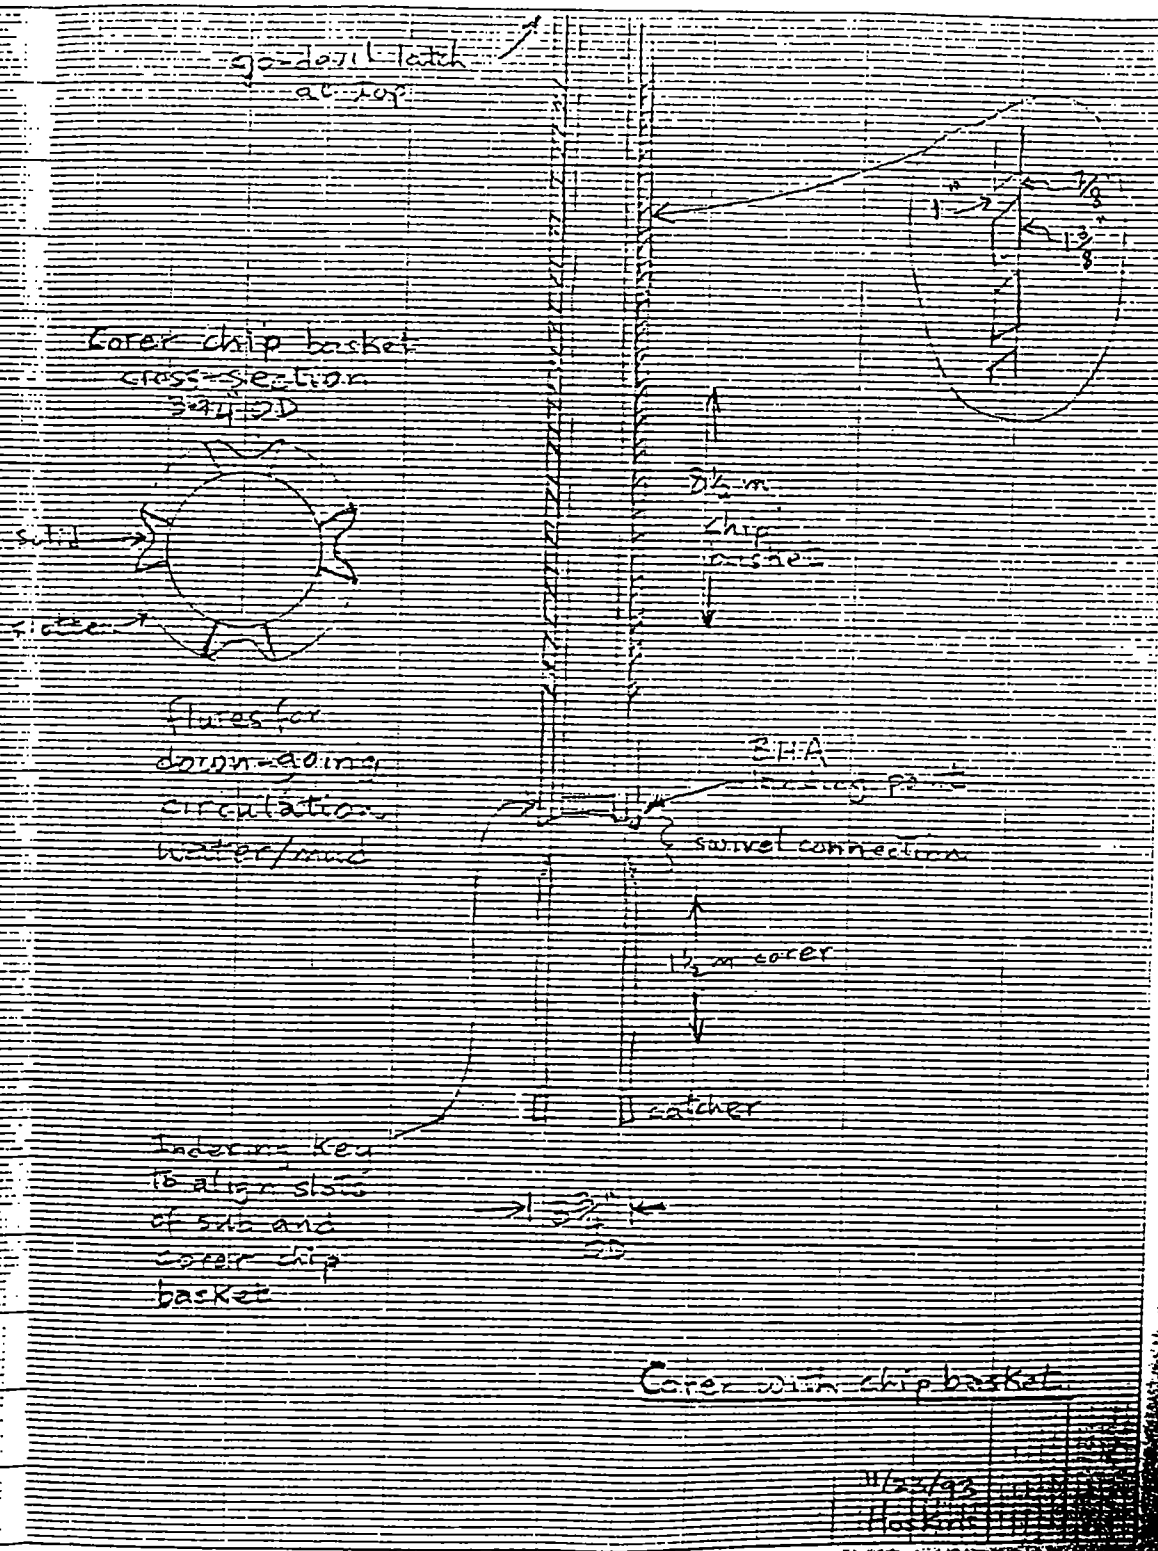 go-devil latch
at top
1"
7/8
1 3/8"
Corer chip basket
cross-section
3-3/4" OD
solid
8½ m
chip
basket
flutes for
down-going
circulation
water/mud
BHA
landing point
swivel connection
1½ m corer
catcher
Indexing Key
to align slots
of sub and
corer chip
basket
3¾"
OD
Corer with chip basket
11/23/93
Hoskins